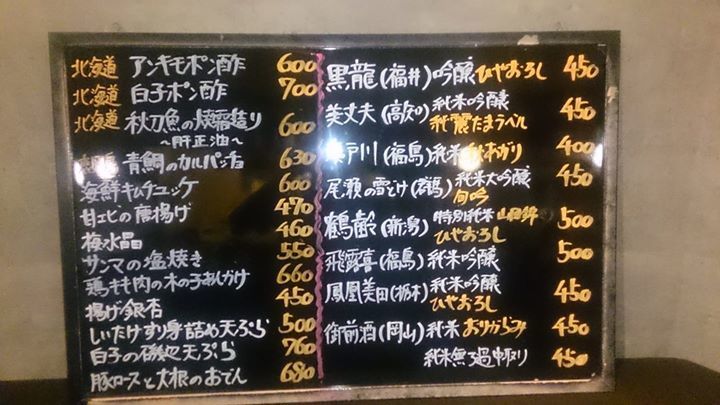 北海道 アンキモポン酢 600
北海道 白子ポン酢 700
北海道 秋刀魚の焼霜造り 600
~肝正油~
青鯛のカルパッチョ 630
海鮮キムチユッケ 600
甘エビの唐揚げ 470
梅水晶 460
サンマの塩焼き 550
鶏もも肉の木の子あんかけ 660
揚げ銀杏 450
しいたけすり身詰め天ぷら 500
白子の磯辺天ぷら 760
豚ロースと大根のおでん 680
黒龍(福井)吟醸 ひやおろし 450
美丈夫(高知)純米吟醸 450
純麗たまラベル
戸川(福島)純米 秋あがり 400
尾瀬の雪どけ(群馬)純米大吟醸 450
旬吟
鶴齢(新潟)特別純米 山田錦 500
ひやおろし
飛露喜(福島)純米吟醸 500
鳳凰美田(栃木)純米吟醸 450
ひやおろし
御前酒(岡山)純米 おりがらみ 450
純米無ろ過中取り 450